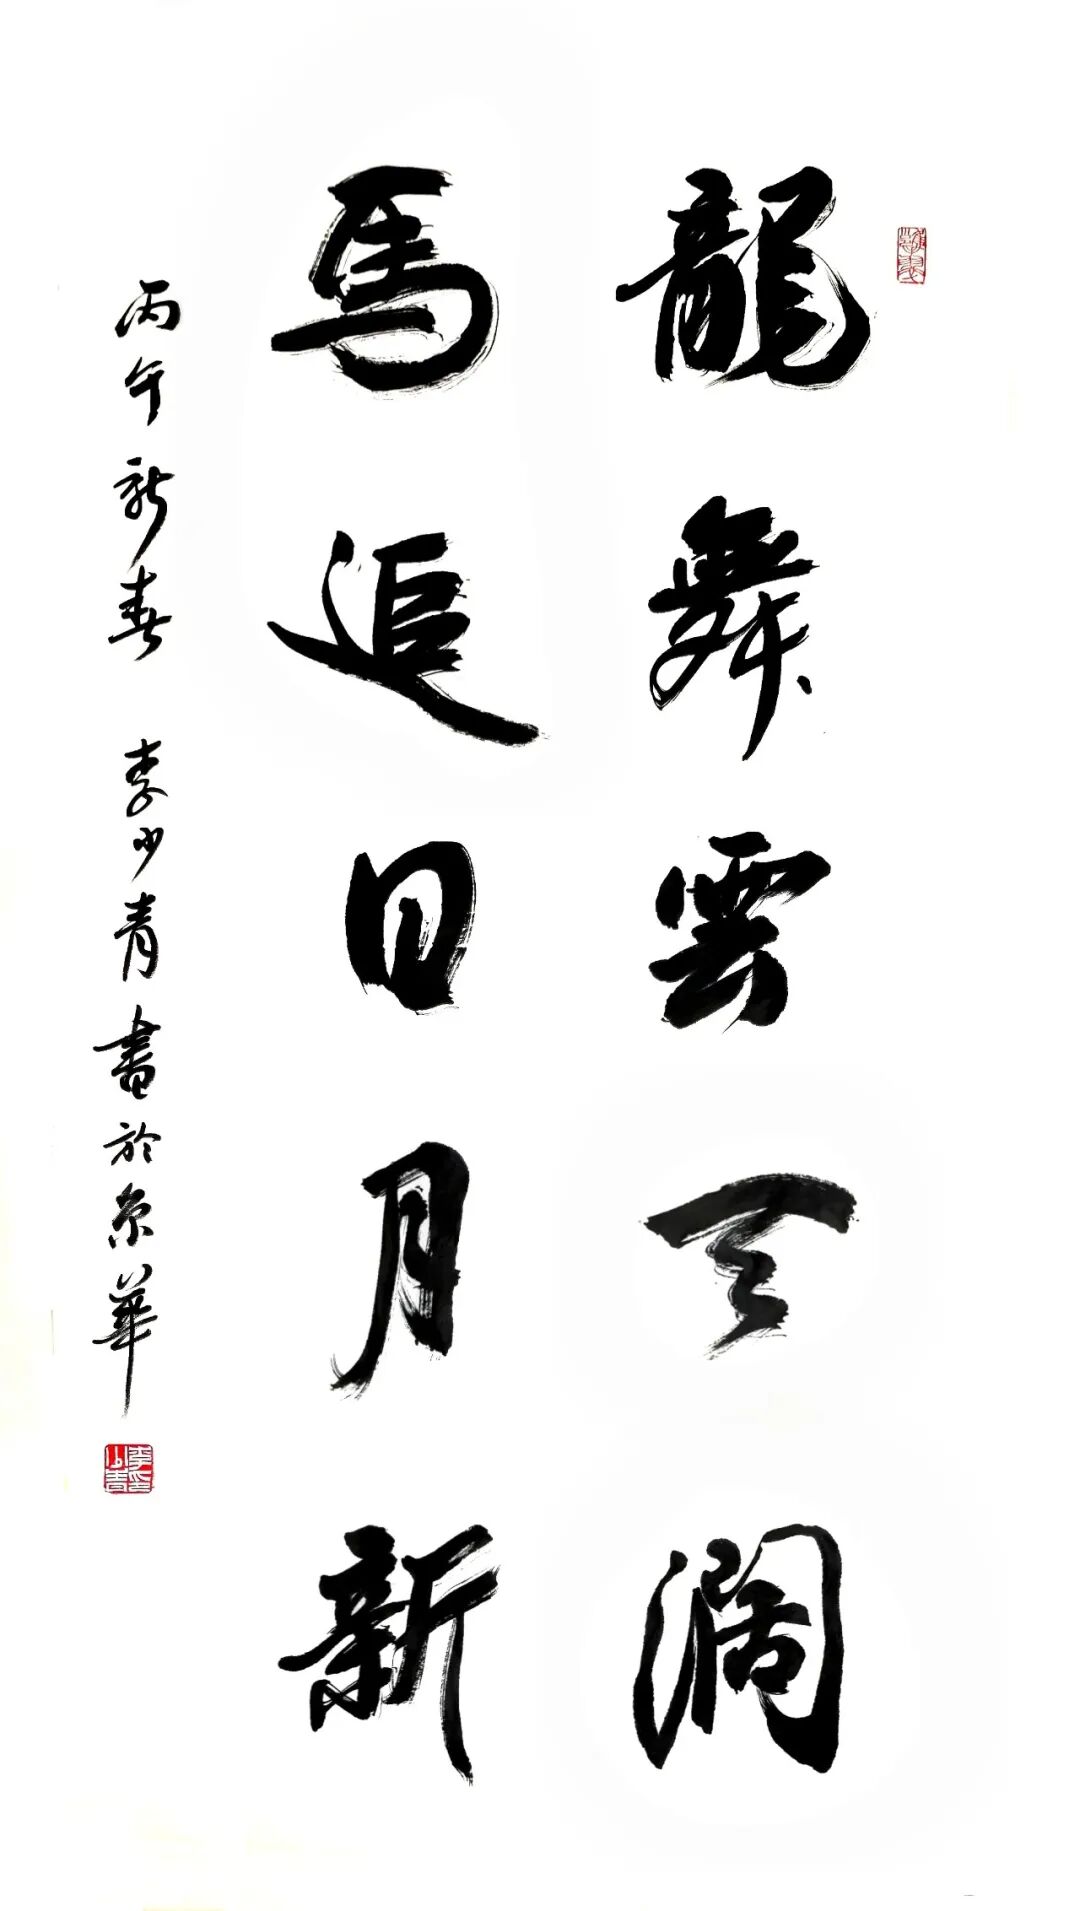 龍舞雲天濶
馬追日月新
丙午新春 李少青書於京華